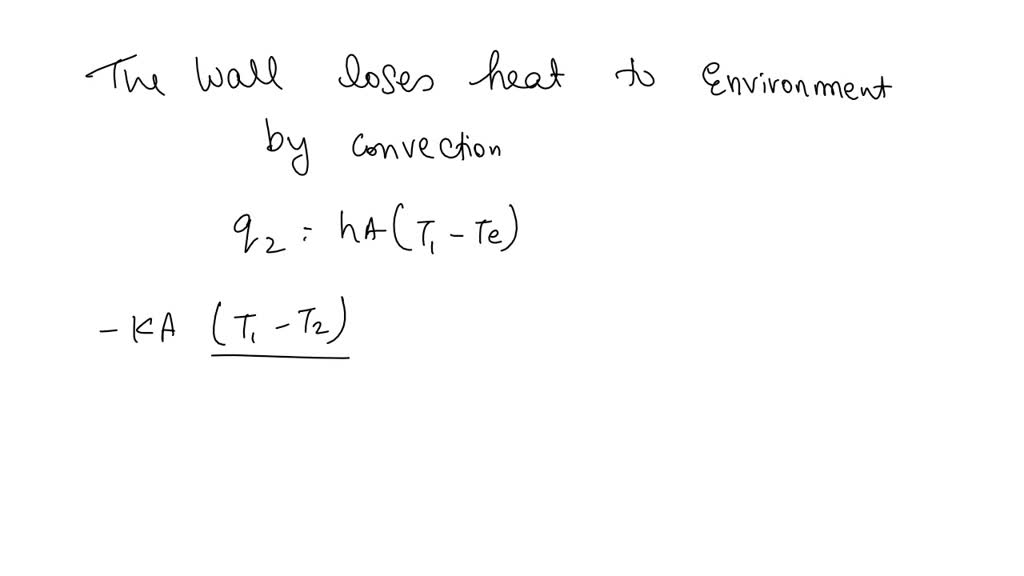 The wall loses heat to Environment
by convection
q₂ = hA(T₁ - Te)
- KA (T₁ - T₂)